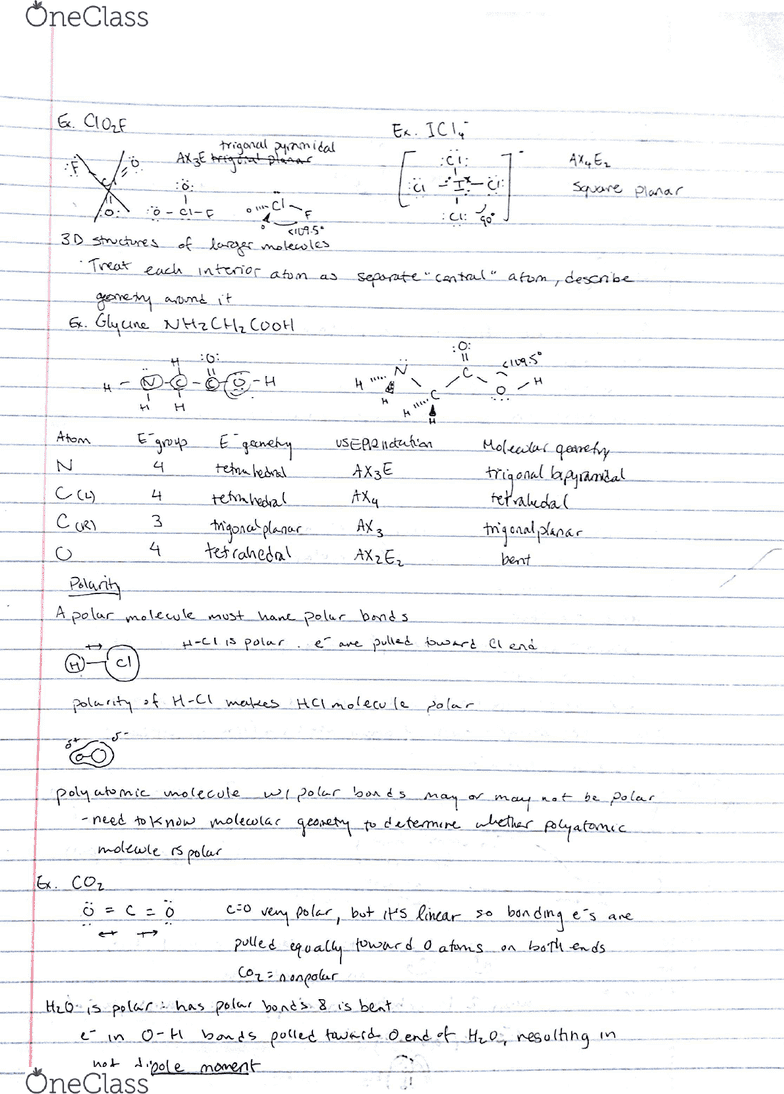 OneClass
Ex. ClO2F
Ex. ICl4-
AX3E trigonal planar trigonal pyramidal
AX4E2
Square planar
:F Cl Ö
:O:
:O:
:Ö - Cl - F
O Cl F
O <109.5°
:Cl:
:Cl - I - Cl:
:Cl: 90°
3D structures of larger molecules
· Treat each interior atom as separate "central" atom, describe
geometry around it
Ex. Glycine NH2CH2COOH
H :O:
H - N - C - C - O - H
H H
:O:
H N C <109.5°
H H C O H
H
Atom E-group E- geometry VSEPR notation Molecular geometry
N 4 tetrahedral AX3E trigonal bipyramidal
C (L) 4 tetrahedral AX4 tetrahedal
C (R) 3 trigonal planar AX3 trigonal planar
O 4 tetrahedral AX2E2 bent
Polarity
A polar molecule must have polar bonds
H - Cl H-Cl is polar. e- are pulled toward Cl end
polarity of H-Cl makes HCl molecule polar
δ+ δ-
polyatomic molecule w/ polar bonds may or may not be polar
- need to know molecular geometry to determine whether polyatomic
molecule is polar
Ex. CO2
Ö = C = Ö C=O very polar, but it's linear so bonding e-s are
pulled equally toward O atoms on both ends
CO2 = nonpolar
H2O is polar: has polar bonds & is bent
e- in O-H bonds pulled toward O end of H2O, resulting in
not dipole moment
OneClass